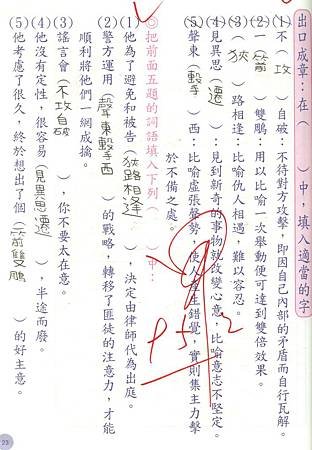 出口成章:在( )中,填入適當的字
(1)不(攻)自破:不待對方攻擊,即因自己內部的矛盾而自行瓦解。
(2)一(箭)雙鵰:用以比喻一次舉動便可達到雙倍效果。
(3)(狹)路相逢:比喻仇人相遇,難以容忍。
(4)見異思(遷):見到新奇的事物就改變心意,比喻意志不堅定。
(5)聲東(擊)西:比喻虛張聲勢,使人產生錯覺,實則集主力擊
於不備之處。
◎把前面五題的詞語填入下列( )中:
(1)他為了避免和被告(狹路相逢),決定由律師代為出庭。
(2)警方運用(聲東擊西)的戰略,轉移了匪徒的注意力,才能
順利將他們一網成擒。
(3)謠言會(不攻自破),你不要太在意。
(4)他沒有定性,很容易(見異思遷),半途而廢。
(5)他考慮了很久,終於想出了個(一箭雙鵰)的好主意。
P52
23